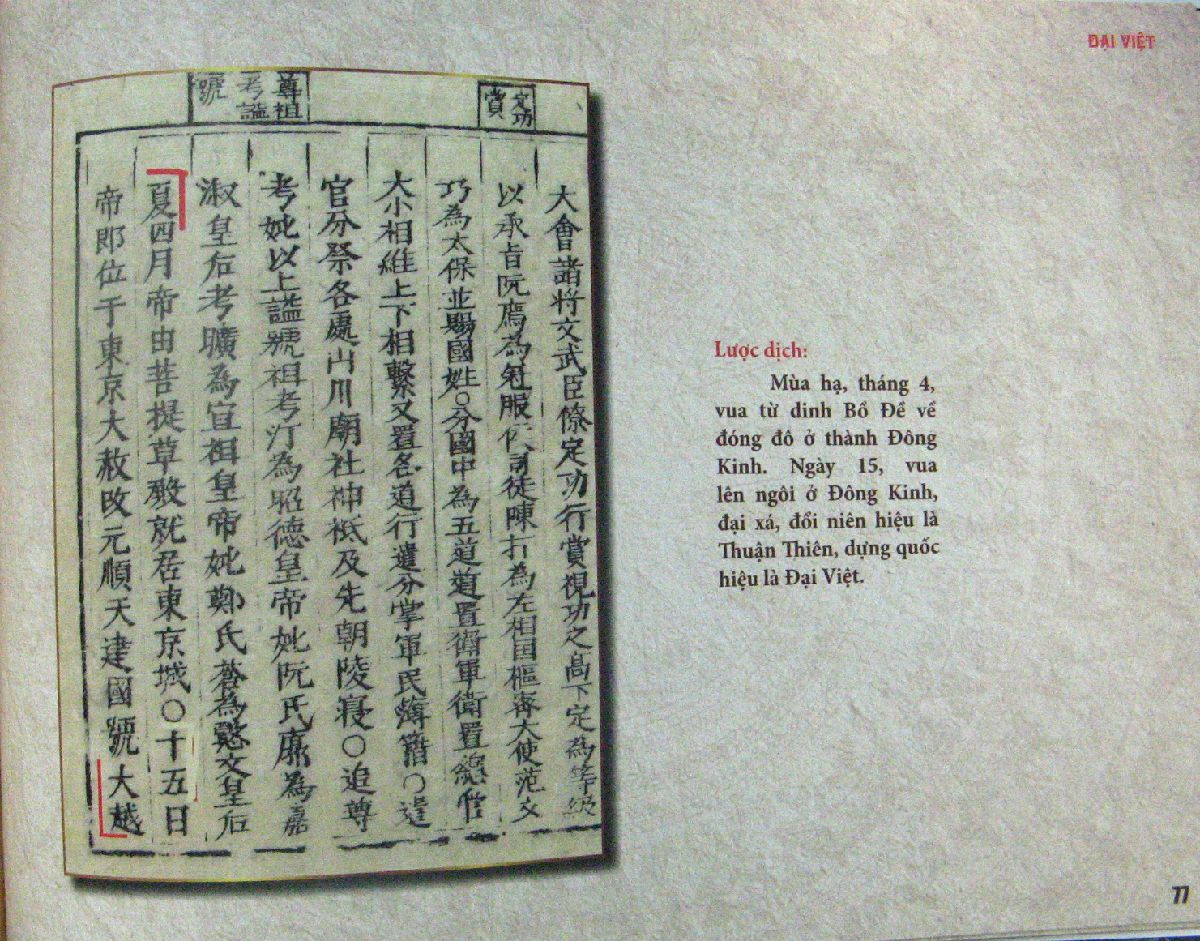 ĐẠI VIỆT
文功
賞
尊祖
考謚
號
大會諸将文武臣僚定功行賞視功之高下定為等級
以承旨阮廌為冠服侯司徒陳扞為左相国樞密大使范文
巧為太保並賜國姓○分國中為五道道置衛軍衛置總管
大小相維上下相繫又置各道行遣分掌軍民薄籍○遣
官分祭各處山川廟社神祇及先朝陵寝○追尊
考妣以上謚號祖考汀為昭德皇帝妣阮氏為嘉
淑皇后考曠為宣祖皇帝妣鄭氏蒼為慜文皇后
夏四月帝由菩提草殿就居東京城○十五日
帝即位于東京大赦改元順天建國號大越
Lược dịch:
Mùa hạ, tháng 4,
vua từ dinh Bồ Đề về
đóng đô ở thành Đông
Kinh. Ngày 15, vua
lên ngôi ở Đông Kinh,
đại xá, đổi niên hiệu là
Thuận Thiên, dựng quốc
hiệu là Đại Việt.
77